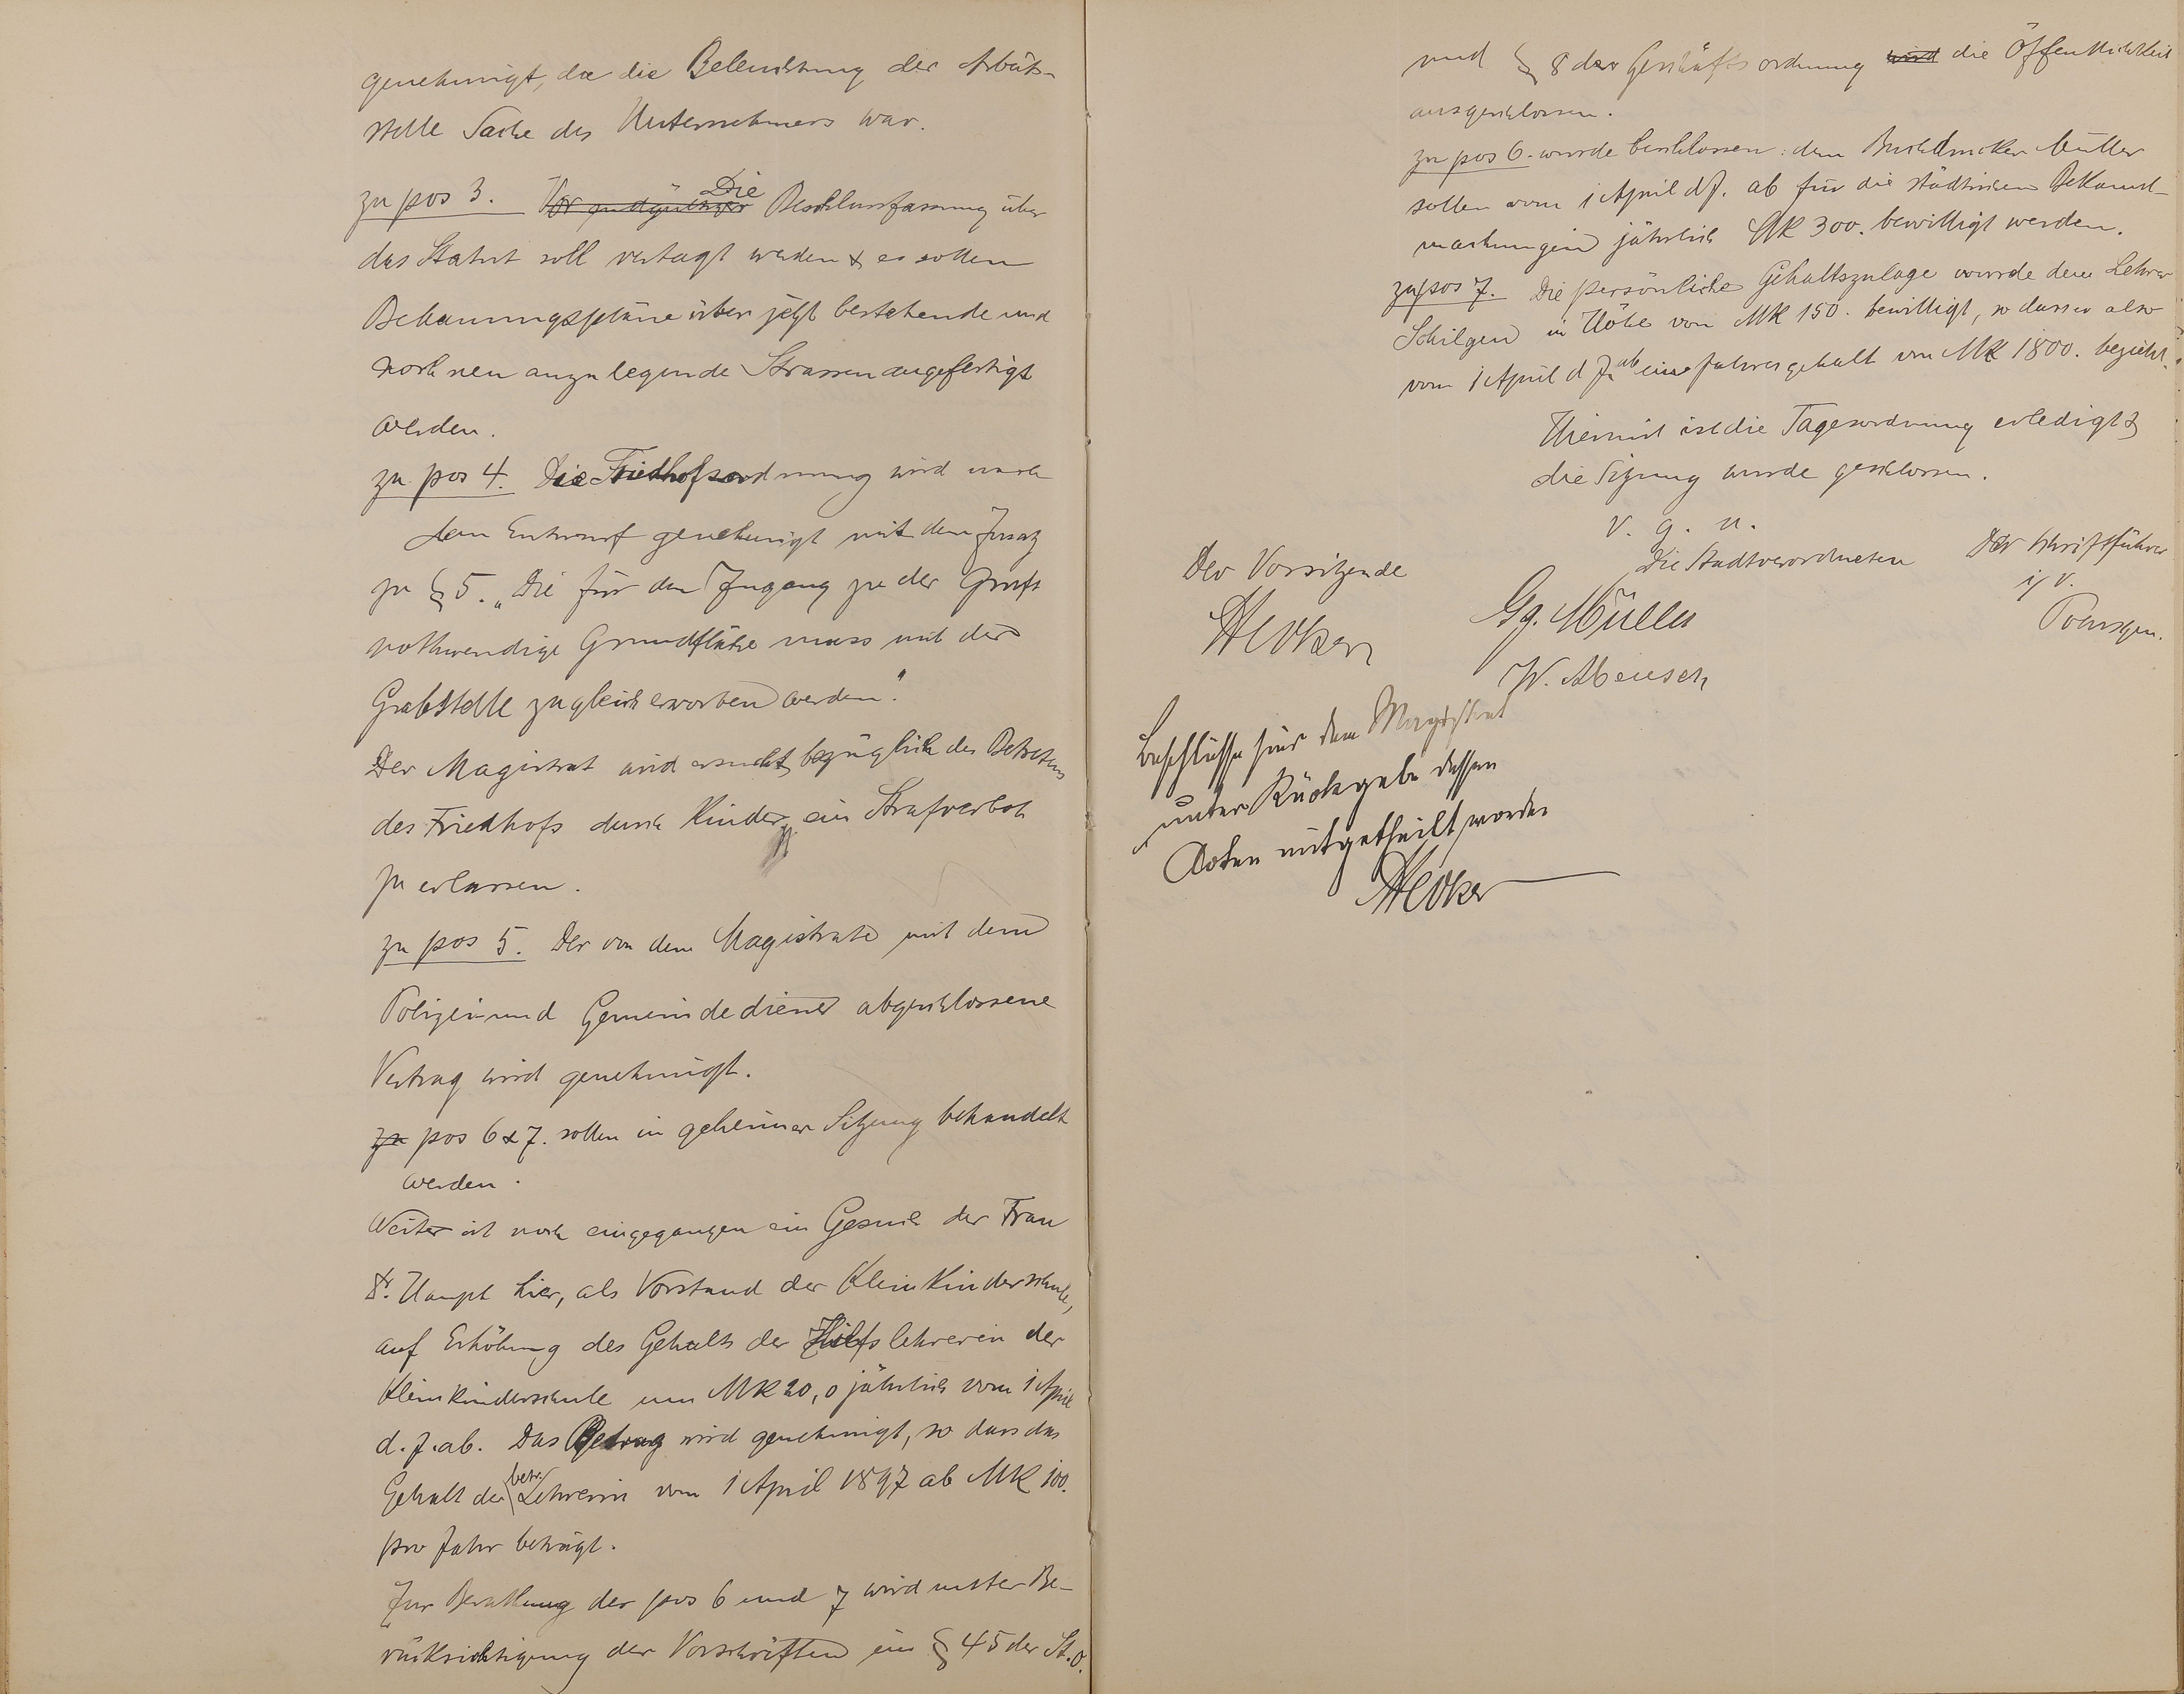 genehmigt, da die Beleuchtung der Arbeits-
stelle Sache des Unternehmers war.
zu pos 3. Vor endgültiger Die Beschlussfassung über
das Statut soll vertagt werden & es sollen
Bebauungspläne über jetzt bestehende und
noch neu anzulegende Strassen angefertigt
werden.
zu pos 4. Die Friedhofsordnung wird nach
dem Entwurf genehmigt mit dem Zusatz
zu § 5. „Die für den Zugang zu der Gruft
nothwendige Grundfläche muss mit der
Grabstelle zugleich erworben werden."
Der Magistrat wird ersucht, bezüglich des Betretens
des Friedhofs durch Kinder, ein Strafverbot
zu erlassen.
zu pos 5. Der von dem Magistrate mit dem
Polizei und Gemeindediener abgeschlossene
Vertrag wird genehmigt.
zu pos 6 & 7. sollen in geheimer Sitzung behandelt
werden.
Weiter ist noch eingegangen ein Gesuch der Frau
Dr. Haupt hier, als Vorstand der Kleinkinderschule,
auf Erhöhung des Gehalts der Hilfslehrerin der
Kleinkinderschule um MK 20,0 jährlich vom 1 April
d. J. ab. Das Betrag wird genehmigt, so dass das
Gehalt der betr. Lehrerin vom 1 April 1897 ab MK 100.
pro Jahr beträgt.
Zur Berathung der pos 6 und 7 wird unter Be-
rücksichtigung der Vorschriften im § 45 der St.O.
und § 8 der Geschäftsordnung wird die Öffentlichkeit
ausgeschlossen.
zu pos 6. wurde beschlossen: dem Buchdrucker Müller
sollen vom 1 April d J. ab für die städtischen Bekannt-
machungen jährlich MK 300. bewilligt werden.
zu pos 7. Die persönliche Gehaltszulage wurde dem Lehrer
Schilgen in Höhe von MK 150. bewilligt, so dass er also
vom 1 April d J. ab eine Jahresgehalt von MK 1800. bezieht.
Hiermit ist die Tagesordnung erledigt &
die Sitzung wurde geschlossen.
V. g. u.
Der Vorsitzende
Die Stadtverordneten
Der Schriftführer
i/V.
Gg. Müller
W. Abeusch
Beschlüsse sind dem Magistrat
unter Rückgabe dessen
Acten mitgetheilt worden